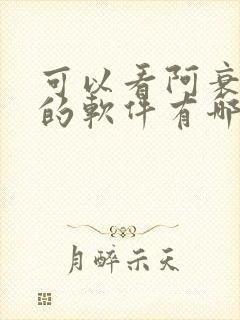 可以看阿衰
的軟件有哪
月醉示天